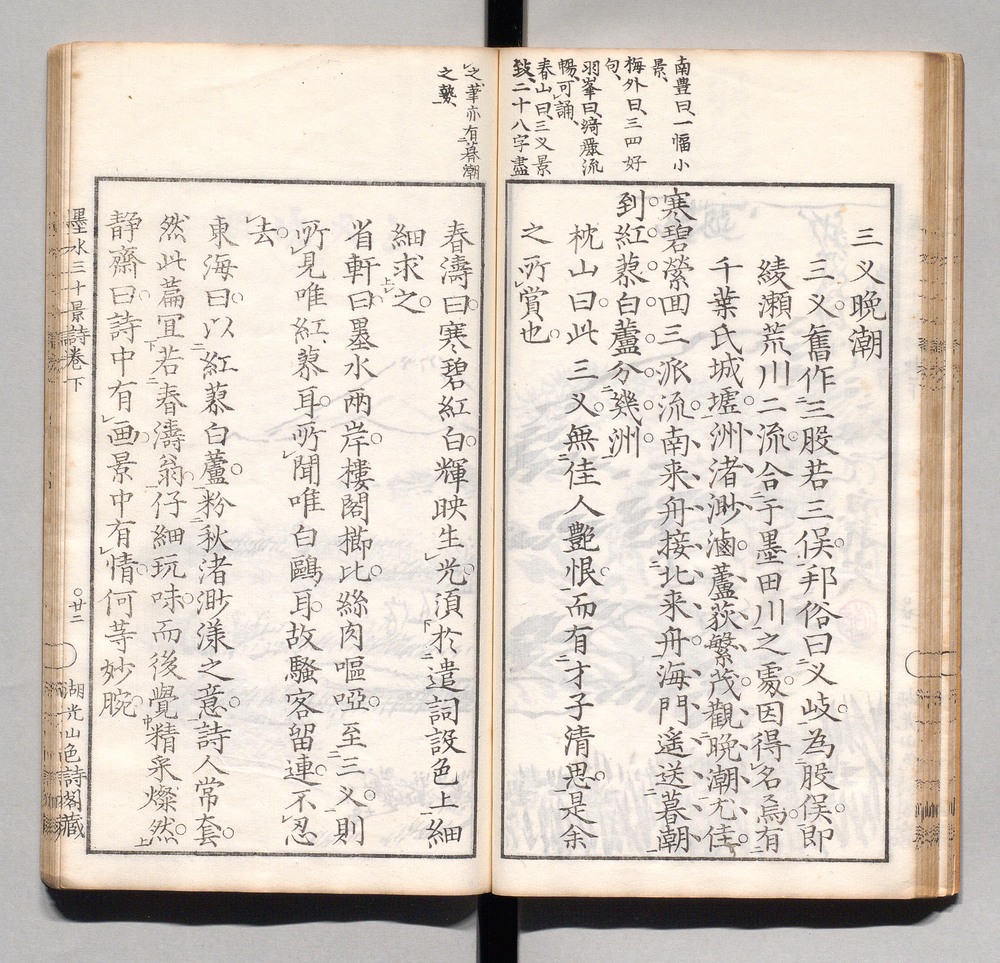 南豊曰一幅小
景、
梅外曰三四好
句、
羽峯曰綺靡流
暢可誦、
春山曰三叉景
致二十八字盡
三叉晩潮
三叉舊作三股若三俣邦俗曰叉岐為股俣即
綾瀬荒川二流合于墨田川之處因得名焉有
千葉氏城墟洲渚渺瀰蘆荻繁茂觀晩潮尤佳
寒碧縈回三派流南来舟接北来舟海門遙送暮潮
到紅蓼白蘆分幾洲
枕山曰此三叉無佳人艷恨而有才子清思是余
之所賞也
之筆亦有暮潮
之勢、
春濤曰寒碧紅白輝映生光須於遣詞設色上細
細求之
省軒曰墨水兩岸樓閣櫛比絲肉嘔啞至三叉則
所見唯紅蓼耳所聞唯白鷗耳故騷客留連不忍
去
東海曰以紅蓼白蘆粉秋渚渺漾之意詩人常套
然此篇冝若春濤翁仔細玩味而後覺精采燦然
静齋曰詩中有画景中有情何等妙腕
墨水三十景詩卷下
廿二
湖光山色詩閣藏